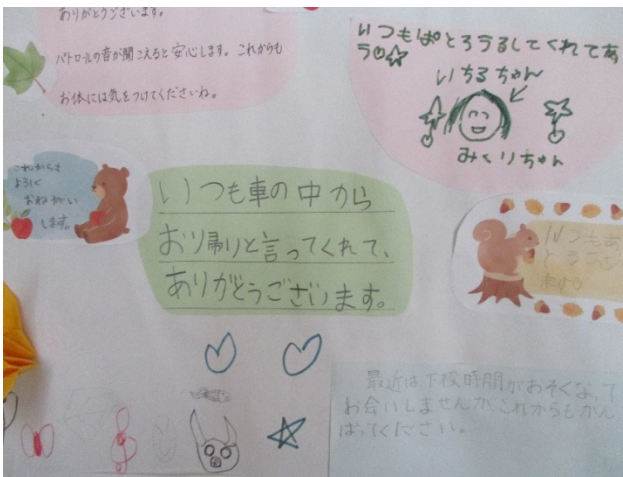 ありがとうございます。
パトロールの音が聞こえると安心します。これからも
お体には気をつけてくださいね。
いつもぱとろうるしてくれてあ
いちるちゃん
みくりちゃん
これからも
よろしく
おねがい
します。
いつも車の中から
お帰りと言ってくれて、
ありがとうございます。
いつもあ
最近は下校時間がおそくなって
お会いしませんがこれからもがん
ばってください。